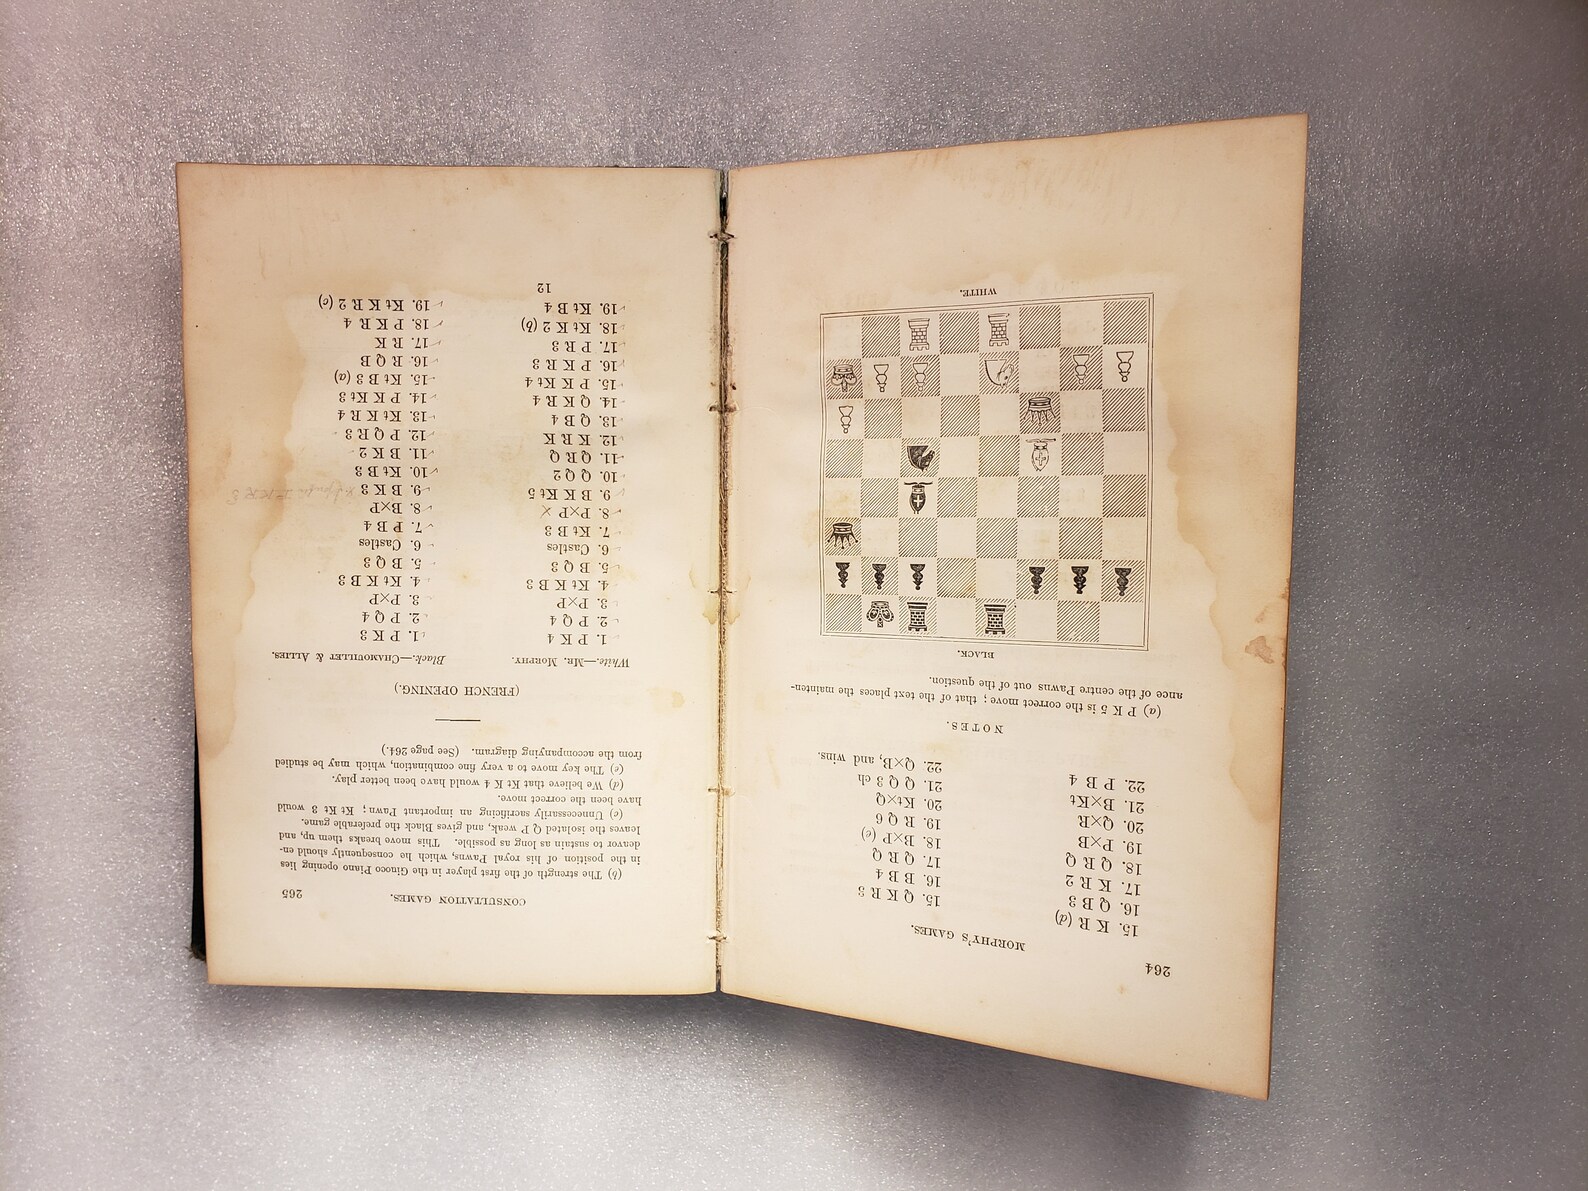 264
MORPHY'S GAMES.
15. K R (d) 15. Q K R 3
16. Q B 3 16. B B 4
17. K R 2 17. Q R Q
18. Q R Q 18. B×P (e)
19. P×B 19. R Q 6
20. Q×R 20. Kt×Q
21. B×Kt 21. Q Q 3 ch
22. P B 4 22. Q×B, and wins.
NOTES.
(a) P K 5 is the correct move; that of the text places the mainten-
ance of the centre Pawns out of the question.
BLACK.
WHITE.
CONSULTATION GAMES. 265
(b) The strength of the first player in the Giuoco Piano opening lies
in the position of his royal Pawns, which he consequently should en-
deavor to sustain as long as possible. This move breaks them up, and
leaves the isolated Q P weak, and gives Black the preferable game.
(c) Unnecessarily sacrificing an important Pawn; Kt Kt 3 would
have been the correct move.
(d) We believe that Kt K 4 would have been better play.
(e) The key move to a very fine combination, which may be studied
from the accompanying diagram. (See page 264.)
(FRENCH OPENING.)
White.—Mr. Morphy. Black.—Chamouillet & Allies.
1. P K 4 1. P K 3
2. P Q 4 2. P Q 4
3. P×P 3. P×P
4. Kt K B 3 4. Kt K B 3
5. B Q 3 5. B Q 3
6. Castles 6. Castles
7. Kt B 3 7. P B 4
8. P×P 8. B×P
9. B K Kt 5 9. B K 3
10. Q Q 2 10. Kt B 3
11. Q R Q 11. B K 2
12. K R K 12. P Q R 3
13. Q B 4 13. Kt K R 4
14. Q K R 4 14. P K Kt 3
15. P K Kt 4 15. Kt B 3 (a)
16. P K R 3 16. R Q B
17. P R 3 17. R K
18. Kt K 2 (b) 18. P K R 4
19. Kt B 4 19. Kt K R 2 (c)
12